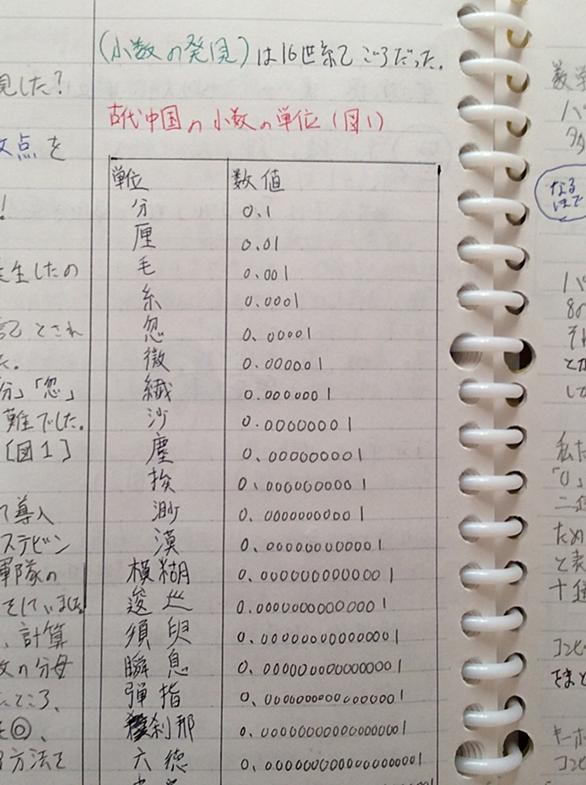 見した?
数点を
!
生したの
記とされ
た。
分」「忽」
難でした。
[図1]
て導入
ステビン
軍隊の
をしていました
、計算
数の分母
たところ、
◎、
方法を
(小数の発見)は16世紀ごろだった。
古代中国の小数の単位(図1)
単位 数値
分 0.1
厘 0.01
毛 0.001
糸 0.0001
忽 0.00001
微 0.000001
繊 0.0000001
沙 0.00000001
塵 0.000000001
埃 0.0000000001
渺 0.00000000001
漠 0.000000000001
模糊 0.0000000000001
逡巡 0.00000000000001
須臾 0.000000000000001
瞬息 0.0000000000000001
弾指 0.00000000000000001
刹那 0.000000000000000001
六徳 0.0000000000000000001
数学
なる
ほど
私た
「0」
ため
と表
コンピ
をまと
キーホ
コンピ